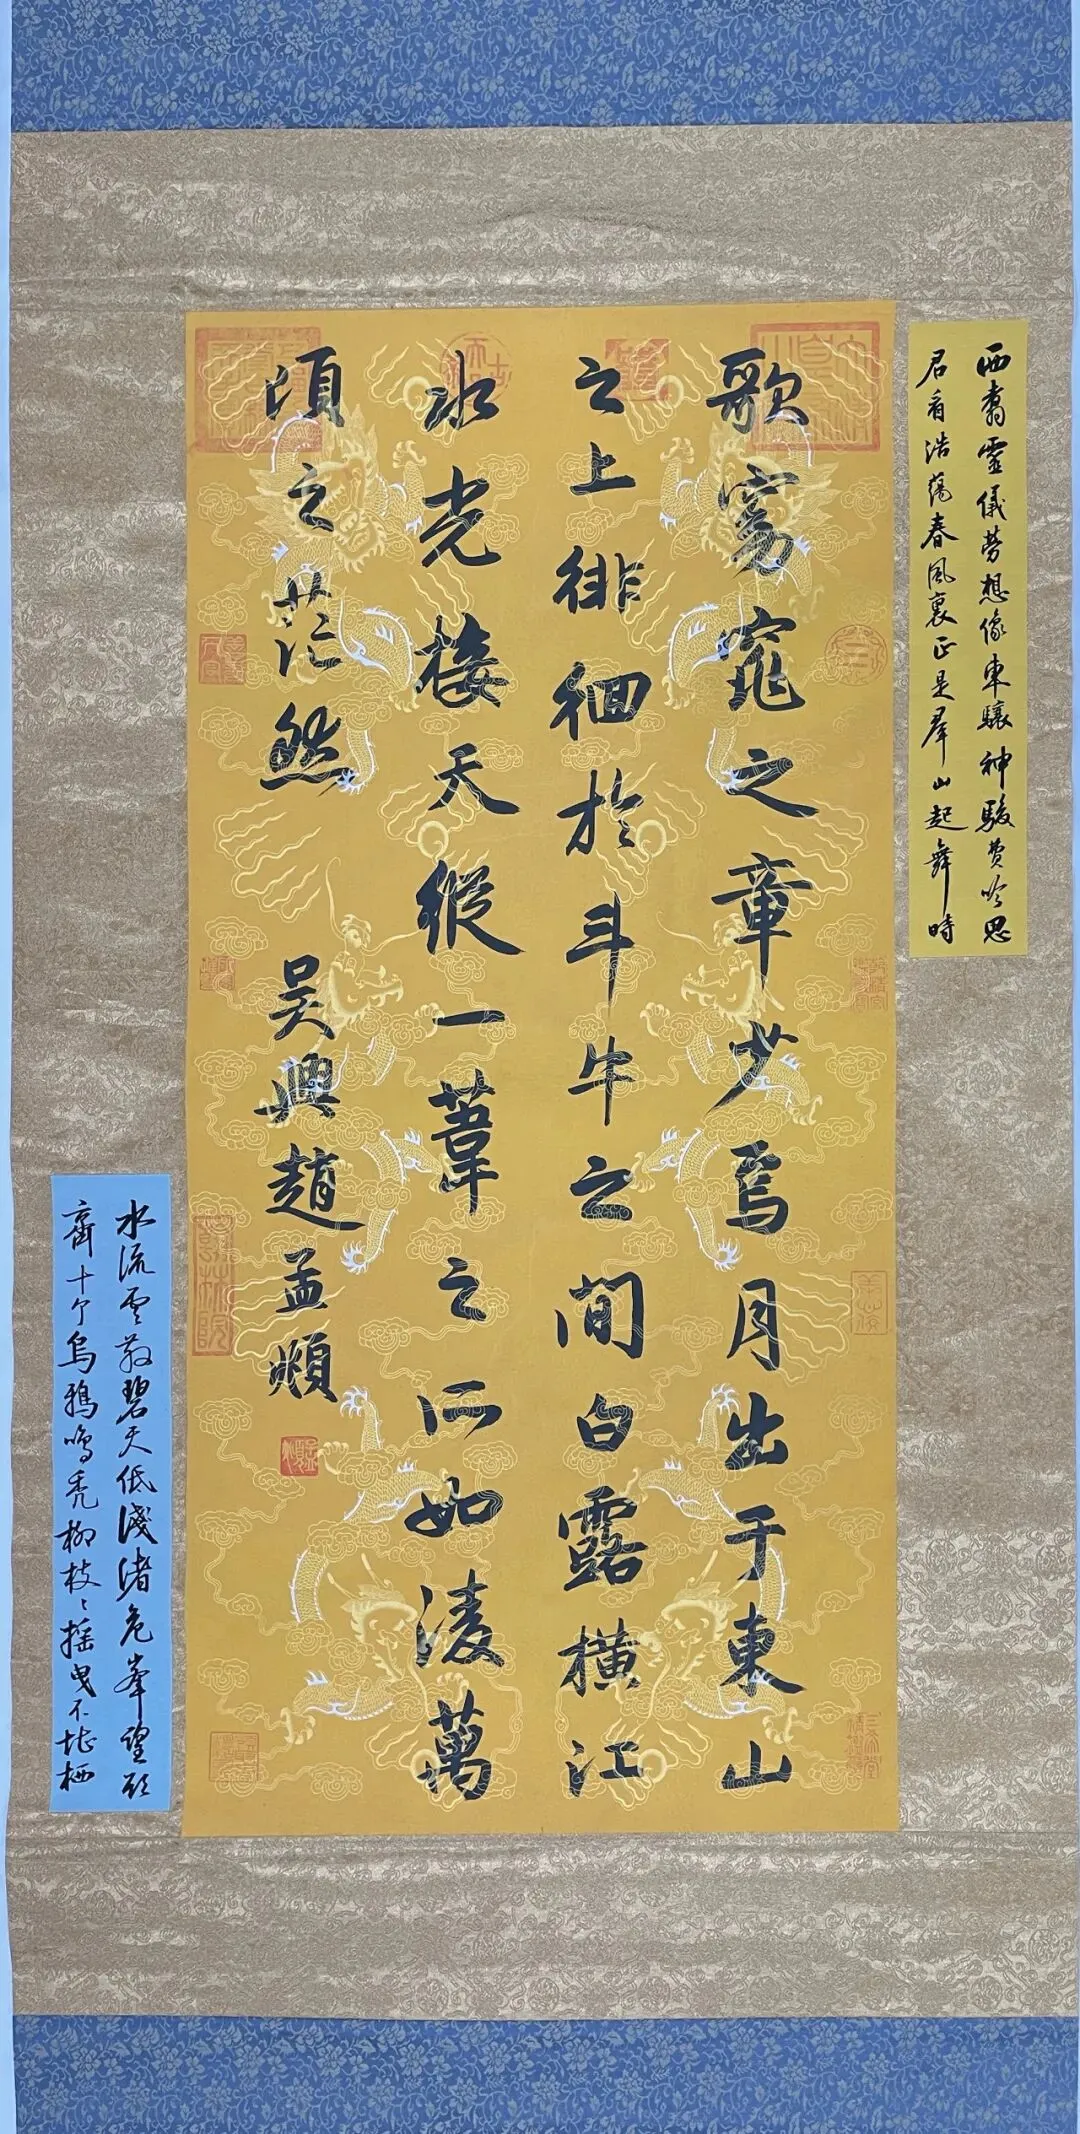 西翥靈儀勞想像東驤神駿費吟思
君看浩蕩春風裏正是羣山起舞時
歌窈窕之章少焉月出于東山
之上徘徊於斗牛之間白露橫江
水光接天縱一葦之所如淩萬
頃之茫然 吳興趙孟頫
水流雲散碧天低淺渚危峯望欲
齊十个烏鴉鳴禿柳枝〻搖曳不堪栖